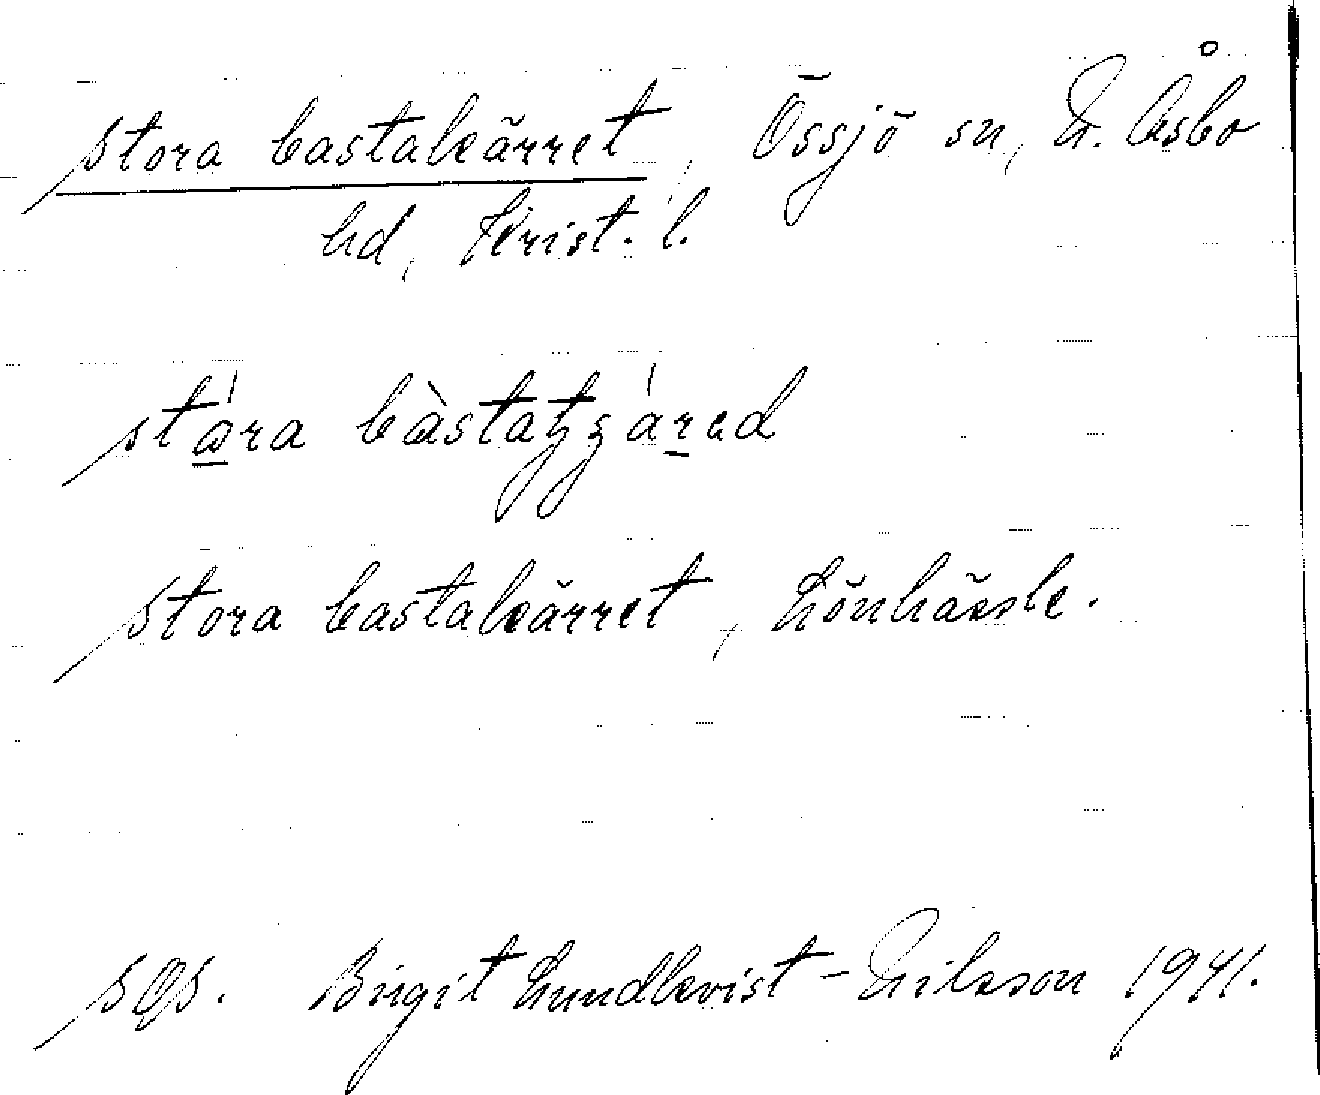 stora bastakärret, Össjö sn, N. Åsbo
hd, Krist. l.
stora bastakärret, Lönhässle.
sgs. Birgit Lundkvist-Nilsson 1941.